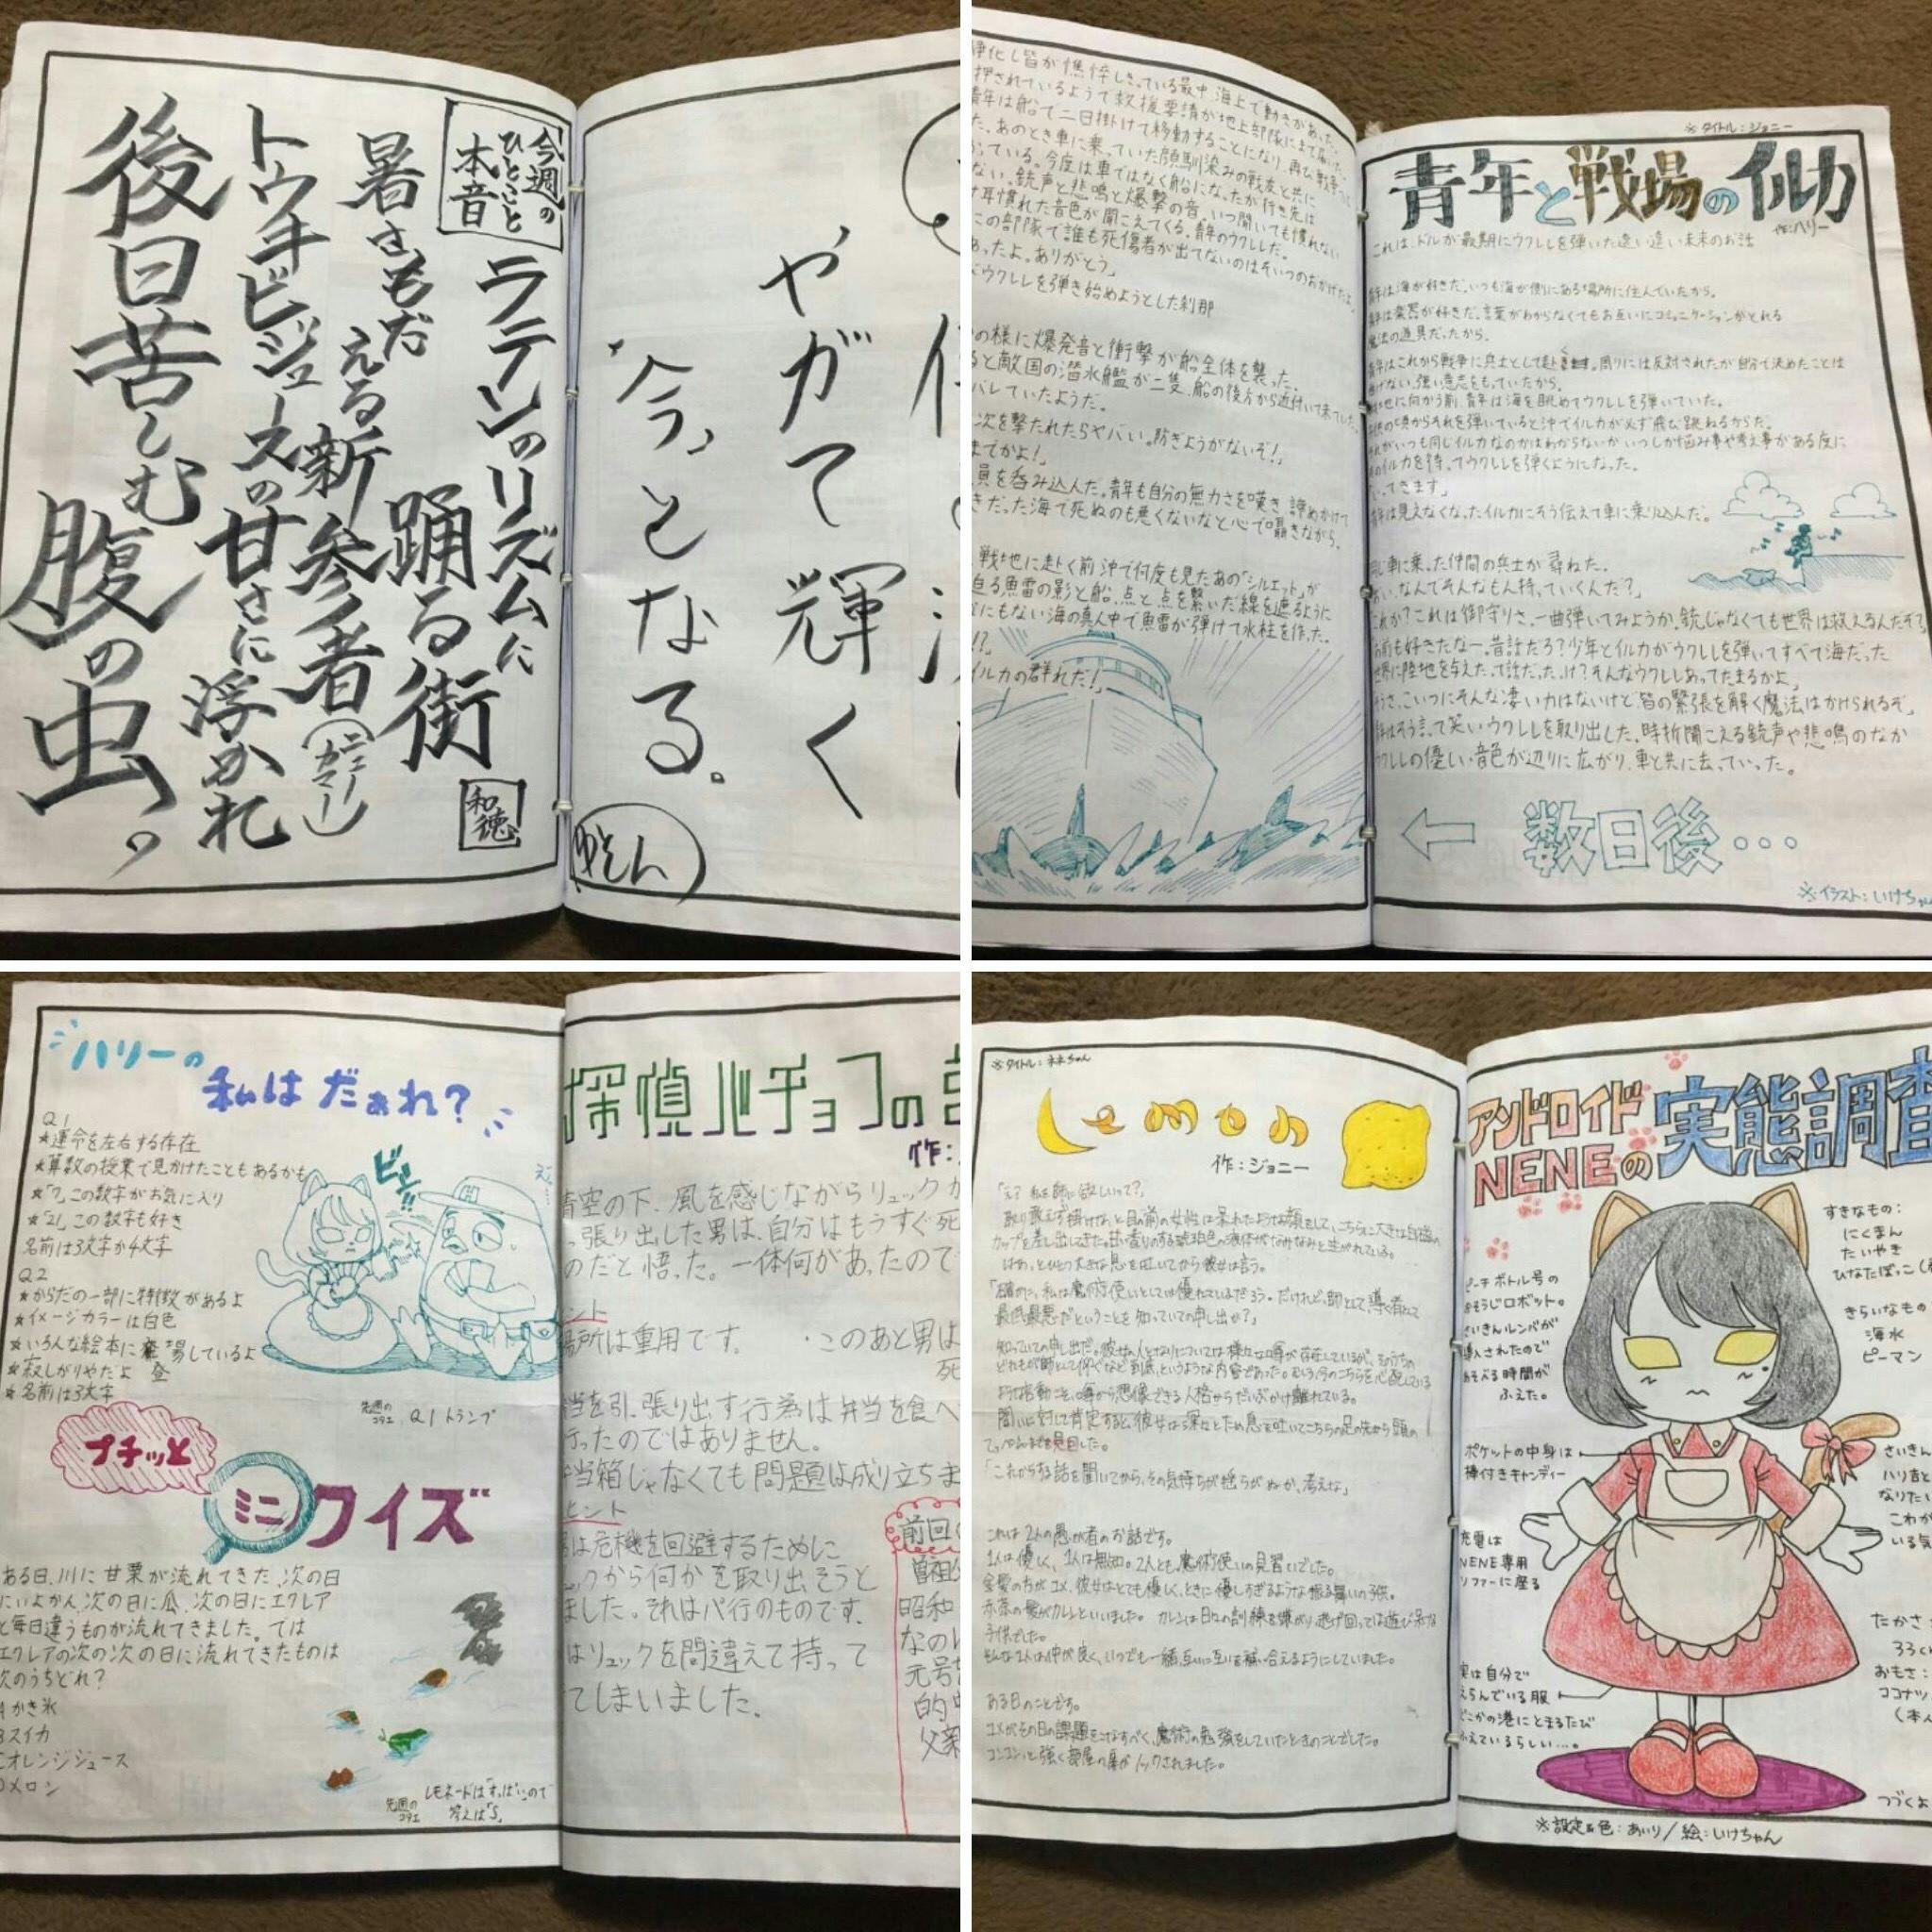 今週の
ひとことと
本音
ラテンのリズムに
踊る街
暑さもだえる
新参者
(ニューカマー)
トウキビジュースの
甘さに浮かれ
後日苦しむ
腹の虫。
和徳
やがて輝く
"今"となる。
ゆせん
※タイトル:ジョニー
青年と戦場のイルカ
作:ハリー
これは、ドルが最期にウクレレを弾いた遠い遠い未来のお話
年は海が好きだ。いつも海が側にある場所に住んでいたから。
年は楽器が好きだ。言葉がわからなくてもお互いにコミュニケーションがとれる
魔法の道具だったから。
年はこれから戦争に兵士として赴く。周りには反対されたが自分で決めたことは
げない、強い意志をもっていたから。
地に向かう前、青年は海を眺めてウクレレを弾いていた。
供の頃からそれを弾いていると沖でイルカが必ず飛び跳ねるからだ。
れがいつも同じイルカなのかはわからないがいつしか悩み事や考え事がある度に
のイルカを待ってウクレレを弾くようになった。
ってきます」
年は見えなくなったイルカにそう伝えて車に乗り込んだ。
じ車に乗った仲間の兵士が尋ねた。
い、なんでそんなもん持っていくんだ?」
れか?これは御守りさ。一曲弾いてみようか。銃じゃなくても世界は救えるんだぞ?
前も好きだなー。昔話だろ?少年とイルカがウクレレを弾いてすべて海だった
世界に陸地を与えたって話だったっけ?そんなウクレレあってたまるかよ」
うさ、こいつにそんな凄い力はないけど、皆の緊張を解く魔法はかけられるぞ」
年はそう言って笑いウクレレを取り出した。時折聞こえる銃声や悲鳴のなか
ウクレレの優しい音色が辺りに広がり、車と共に去っていった。
← 数日後…
※イラスト:いけちゃ
浄化し皆が憔悴しきっている最中、海上で動きがあった。
押されているようで救援要請が地上部隊にまで届いた。
青年は船で二日掛けて移動することになり、再び戦争
た、あのとき車に乗っていた顔馴染みの戦友と共に
っている。今度は車ではなく船になったが行き先は
ない。銃声と悲鳴と爆撃の音。いつ聞いても慣れない
け耳慣れた音色が聞こえてくる。青年のウクレレだ。
この部隊で誰も死傷者が出てないのはそいつのおかげだよ
あったよ。ありがとう」
くウクレレを弾き始めようとした刹那
の様に爆発音と衝撃が船全体を襲った。
ると敵国の潜水艦が二隻、船の後方から近付いて来ていた
バレていたようだ。
次を撃たれたらヤバい。防ぎようがないぞ!」
までかよ!」
員を呑み込んだ。青年も自分の無力さを嘆き、諦めかけて
きだった海で死ぬのも悪くないなと心で囁きながら。
戦地に赴く前、沖で何度も見たあの「シルエット」が
迫る魚雷の影と船、点と点を繋いだ線を遮るように
なにもない海の真ん中で魚雷が弾けて水柱を作った。
!?」
イルカの群れだ!」
ハリーの
私はだぁれ?
Q1
★運命を左右する存在
★算数の授業で見かけたこともあるかも
★「7」この数字がお気に入り
★「21」この数字も好き
名前は3文字か4文字
Q2
★からだの一部に特徴があるよ
★イメージカラーは白色
★いろんな絵本に登場しているよ
★寂しがりやだよ
★名前は3文字
ビシッ!!
先週のコタエ Q1 トランプ
プチッと
ミニクイズ
ある日、川に甘栗が流れてきた、次の日
にいよかん、次の日に瓜、次の日にエクレア
と毎日違うものが流れてきました。では
エクレアの次の次の日に流れてきたものは
次のうちどれ?
A かき氷
Bスイカ
Cオレンジジュース
Dメロン
先週のコタエ レモネードは「すっぱい」ので
答えは「S」
探偵ハチョコの
作:
青空の下、風を感じながらリュックか
っ張り出した男は、自分はもうすぐ死
のだと悟った。一体何があったので
ヒント
場所は重用です。 ・このあと男は
死
当を引っ張り出す行為は弁当を食べ
行ったのではありません。
当箱じゃなくても問題は成り立ちま
ヒント
は危機を回避するために
ュックから何かを取り出そうと
ました。それはパ行のものです。
はリュックを間違えて持って
てしまいました。
前回
曽祖
昭和
なの
元号
的
父親
※タイトル:ネネちゃん
Lemon
作:ジョニー
「え?私を師に欲しいって?」
取り敢えず掛けな、と目の前の女性は呆れたような顔をして、こちらに大きな白磁の
カップを差し出してきた。甘い香りのする琥珀色の液体がなみなみと注がれている。
はあ、とひとつ大きな息を吐いてから彼女は言う。
「確かに、私は魔術使いとしては優れているだろう。だけれど、師として導く者として
最低最悪だということを知っていての申し出か?」
問いに対して肯定すると、彼女は深々とため息を吐いてこちらの足の先から頭の
てっぺんまでを見回した。
「これからする話を聞いてから、その気持ちが揺らがぬか、考えな」
これは2人の愚か者のお話です。
1人は優しく、1人は無知。2人とも、魔術使いの見習いでした。
金髪の方がユメ。彼女はとても優しく、ときに優しすぎるような振る舞いの子供。
赤茶の髪がカレンといいました。カレンは日々の訓練を嫌がり逃げ回っては遊び呆ける
子供でした。
そんな2人は仲が良く、いつでも一緒、互いに互いを補い合えるようにしていました。
ある日のことです。
ユメがその日の課題をこなすべく、魔術の勉強をしていたときのことでした。
コンコン、と強く部屋の扉がノックされました。
アンドロイド
NENEの実態調査
すきなもの:
にくまん
たいやき
ひなたぼっこ
きらいなもの
海水
ピーマン
ピーチボトル号の
おそうじロボット。
さいきんルンバが
導入されたので
あそべる時間が
ふえた。
ポケットの中身は
棒付きキャンディー
充電は
NENE専用
ソファーに座る
実は自分で
えらんでいる服
どこかの港にとまるたび
ふえているらしい…。
さいきん
ハリ吉と
なりたい
こわが
いる気
たかさ:
33c
おもさ:
ココナツ
(本人
つづくよ
※設定&色:あいり/絵:いけちゃん